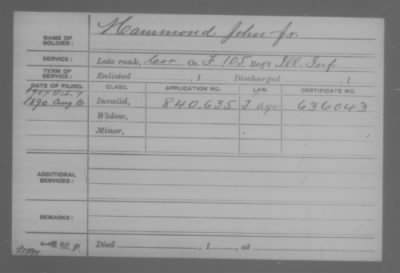 NAME OF SOLDIER: Hammond John Jr.
SERVICE: Late rank, Cor Co. F, 105 Reg't Ill. Inf
TERM OF SERVICE: Enlisted , 1 Discharged , 1
DATE OF FILING. CLASS. APPLICATION NO. LAW. CERTIFICATE NO.
1890 Aug Invalid, 840.635 J 636043
Widow,
Minor,
ADDITIONAL SERVICES:
REMARKS:
Died , 1 , at